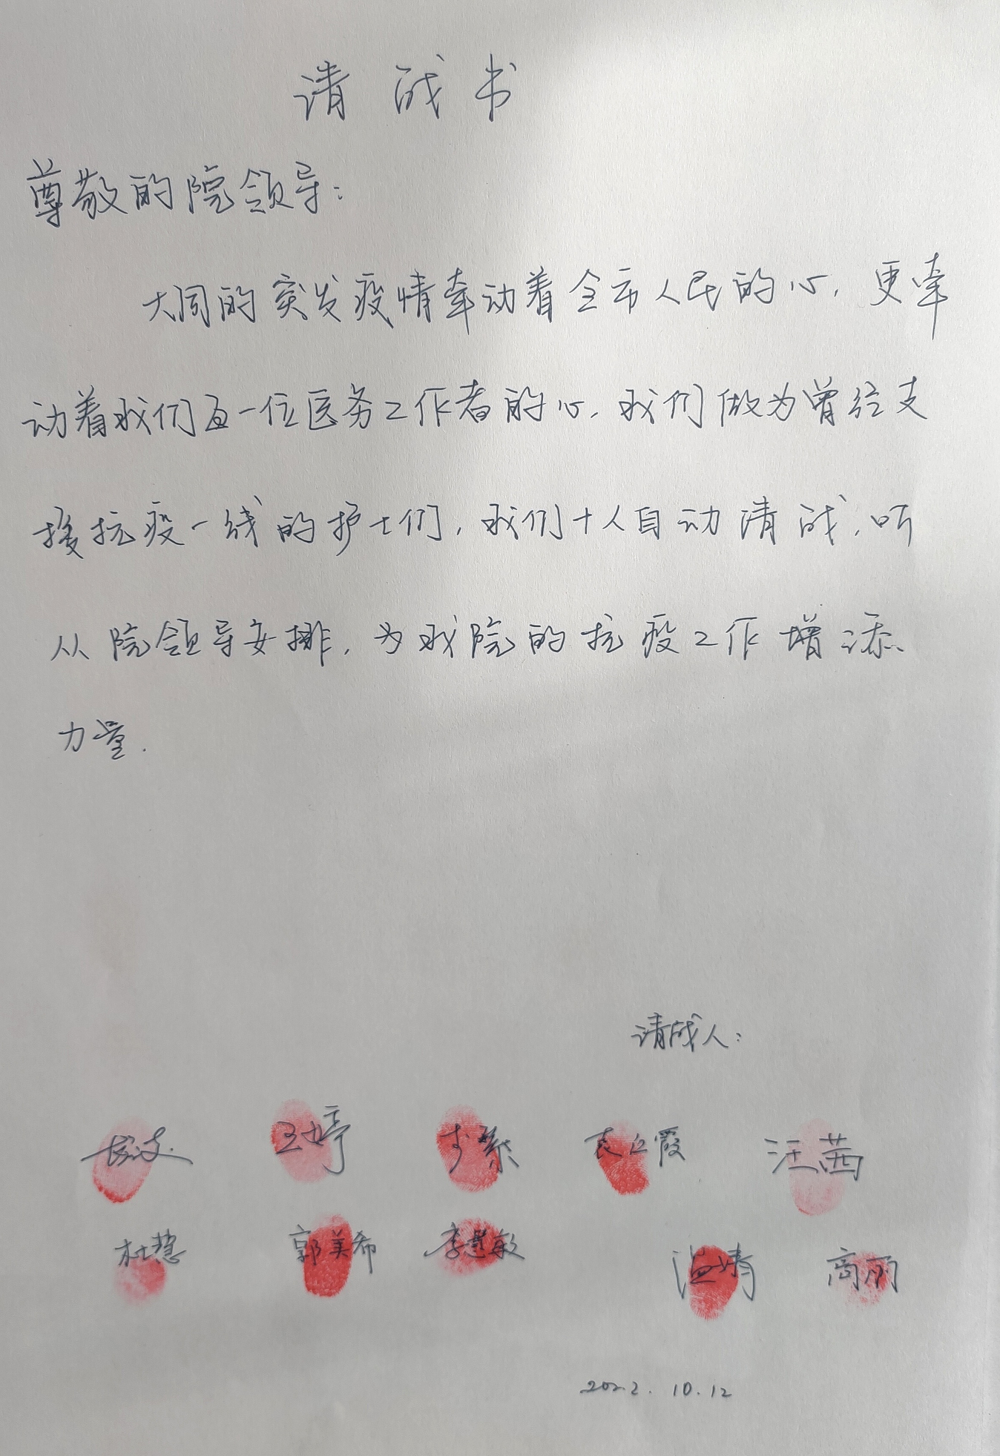 请战书
尊敬的院领导:
大同的突发疫情牵动着全市人民的心,更牵
动着我们每一位医务工作者的心.我们做为曾经支
援抗疫一线的护士们,我们十人自动请战,听
从院领导安排,为我院的抗疫工作增添
力量.
请战人:
王婷 袁红霞 汪茜
杜慧 郭美希 李慧敏 温婧 高丽
2022.10.12